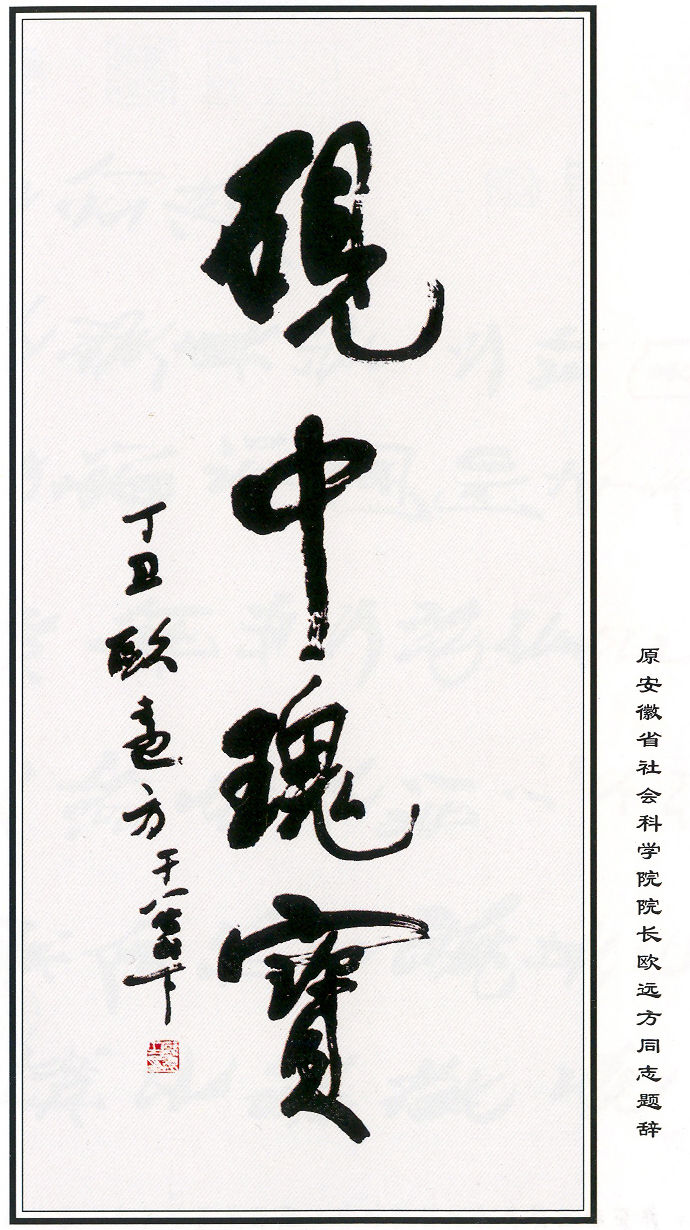 硯中瑰寶
丁丑歐遠方于合肥
原安徽省社会科学院院长欧远方同志题辞